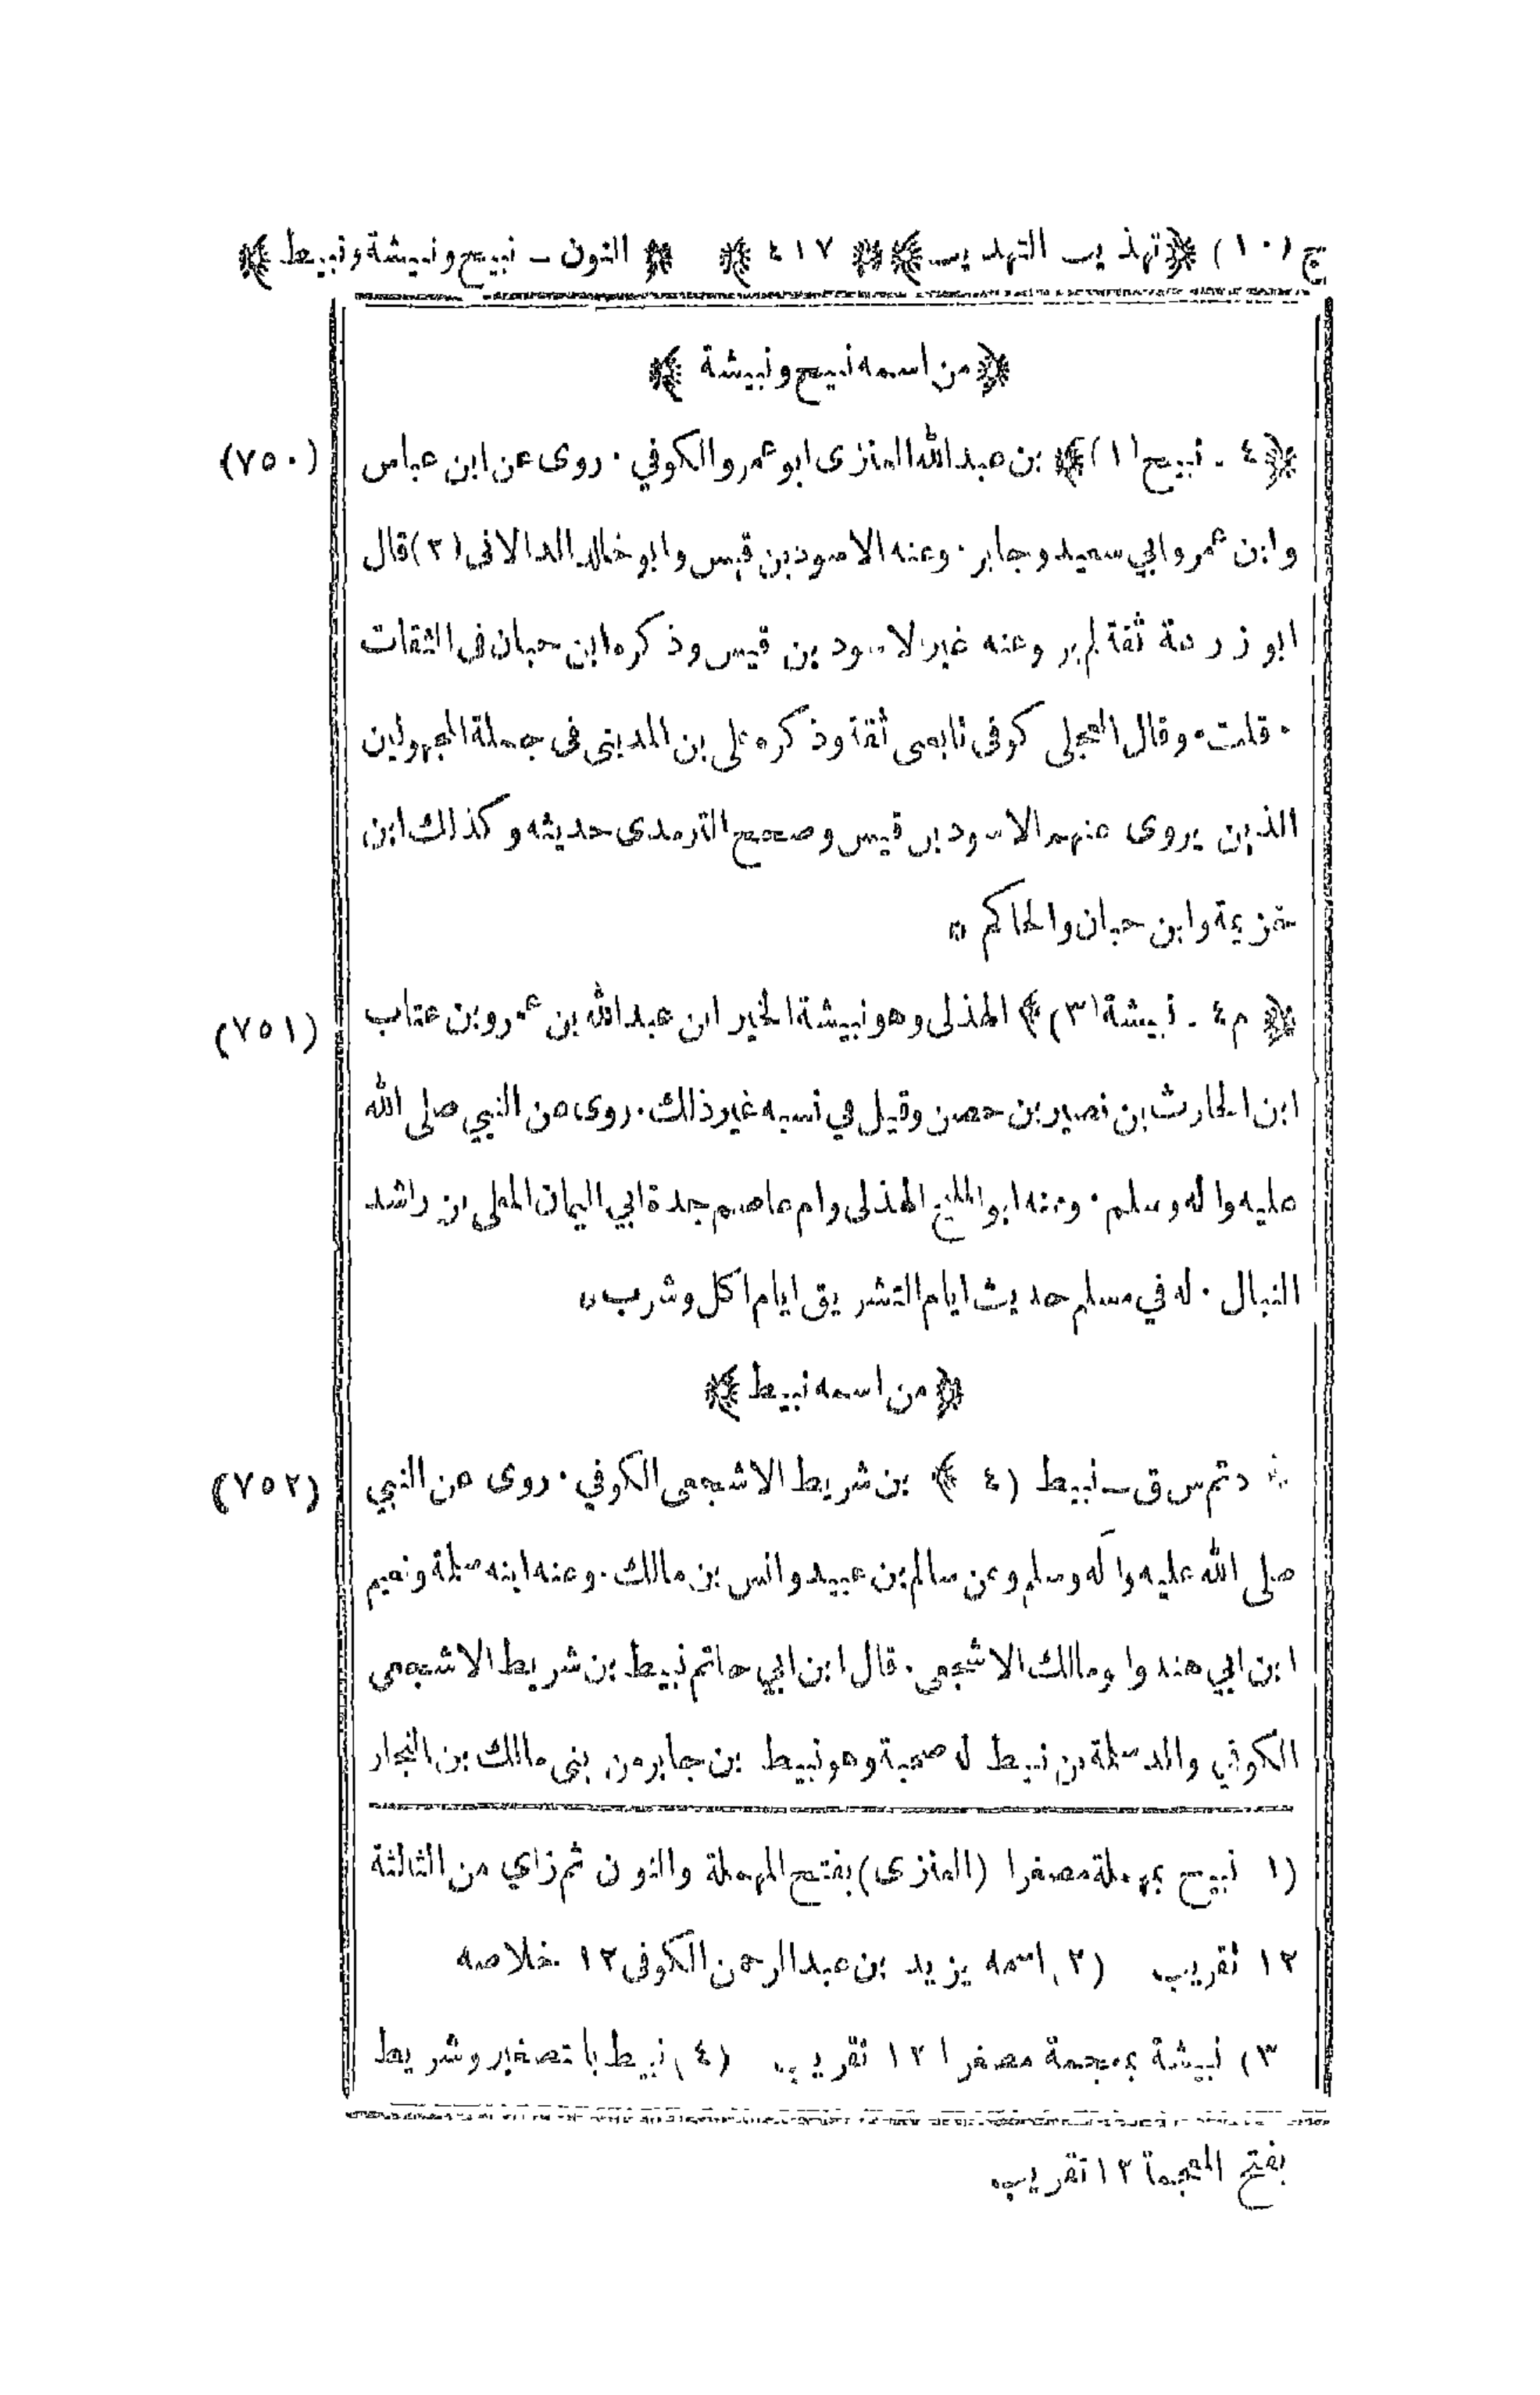 ج (١٠) ﴿تهذيب التهذيب﴾ ﴿٤١٧﴾ ﴿النون – نبيح ونبيشة ونبيط﴾
﴿من اسمه نبيح ونبيشة﴾
(٧٥٠) ﴿٤ - نبيح (١)﴾ بن عبد الله العنزى ابو عمرو الكوفي · روى عن ابن عباس
وابن عمر وابي سعيد وجابر · وعنه الاسود بن قيس وابو خالد الدالانى (٢) قال
ابو زرعة ثقة لم يرو عنه غير الاسود بن قيس وذكره ابن حبان فى الثقات
· قلت · وقال العجلى كوفى تابعى ثقة وذكره على بن المدينى فى جملة المجهولين
الذين يروى عنهم الاسود بن قيس وصحح الترمذى حديثه وكذلك ابن
خزيمة وابن حبان والحاكم ۞
(٧٥١) ﴿م ٤ - نبيشة (٣)﴾ الهذلى وهو نبيشة الخير ابن عبد الله بن عمرو بن عتاب
ابن الحارث بن نصير بن حصن وقيل في نسبه غير ذلك · روى عن النبي صلى الله
عليه واله وسلم · وعنه ابو المليح الهذلى وام عاصم جدة ابي اليمان المعلى بن راشد
النبال · له في مسلم حديث ايام التشريق ايام اكل وشرب ۞
﴿من اسمه نبيط﴾
(٧٥٢) ﴿د تم س ق – نبيط (٤)﴾ بن شريط الاشجعى الكوفي · روى عن النبي
صلى الله عليه وآله وسلم وعن سالم بن عبيد وانس بن مالك · وعنه ابنه سلمة ونعيم
ابن ابي هند وابو مالك الاشجعى · قال ابن ابي حاتم نبيط بن شريط الاشجعى
الكوفي والد سلمة بن نبيط له صحبة وهو نبيط بن جابر من بنى مالك بن النجار
(١) نبيح بمهملة مصغرا (العنزى) بفتح المهملة والنون ثم زاي من الثالثة
١٢ تقريب (٢) اسمه يزيد بن عبد الرحمن الكوفى ١٢ خلاصه
(٣) نبيشة بمعجمة مصغرا ١٢ تقريب (٤) نبيط بالتصغير وشريط
بفتح المعجمة ١٢ تقريب